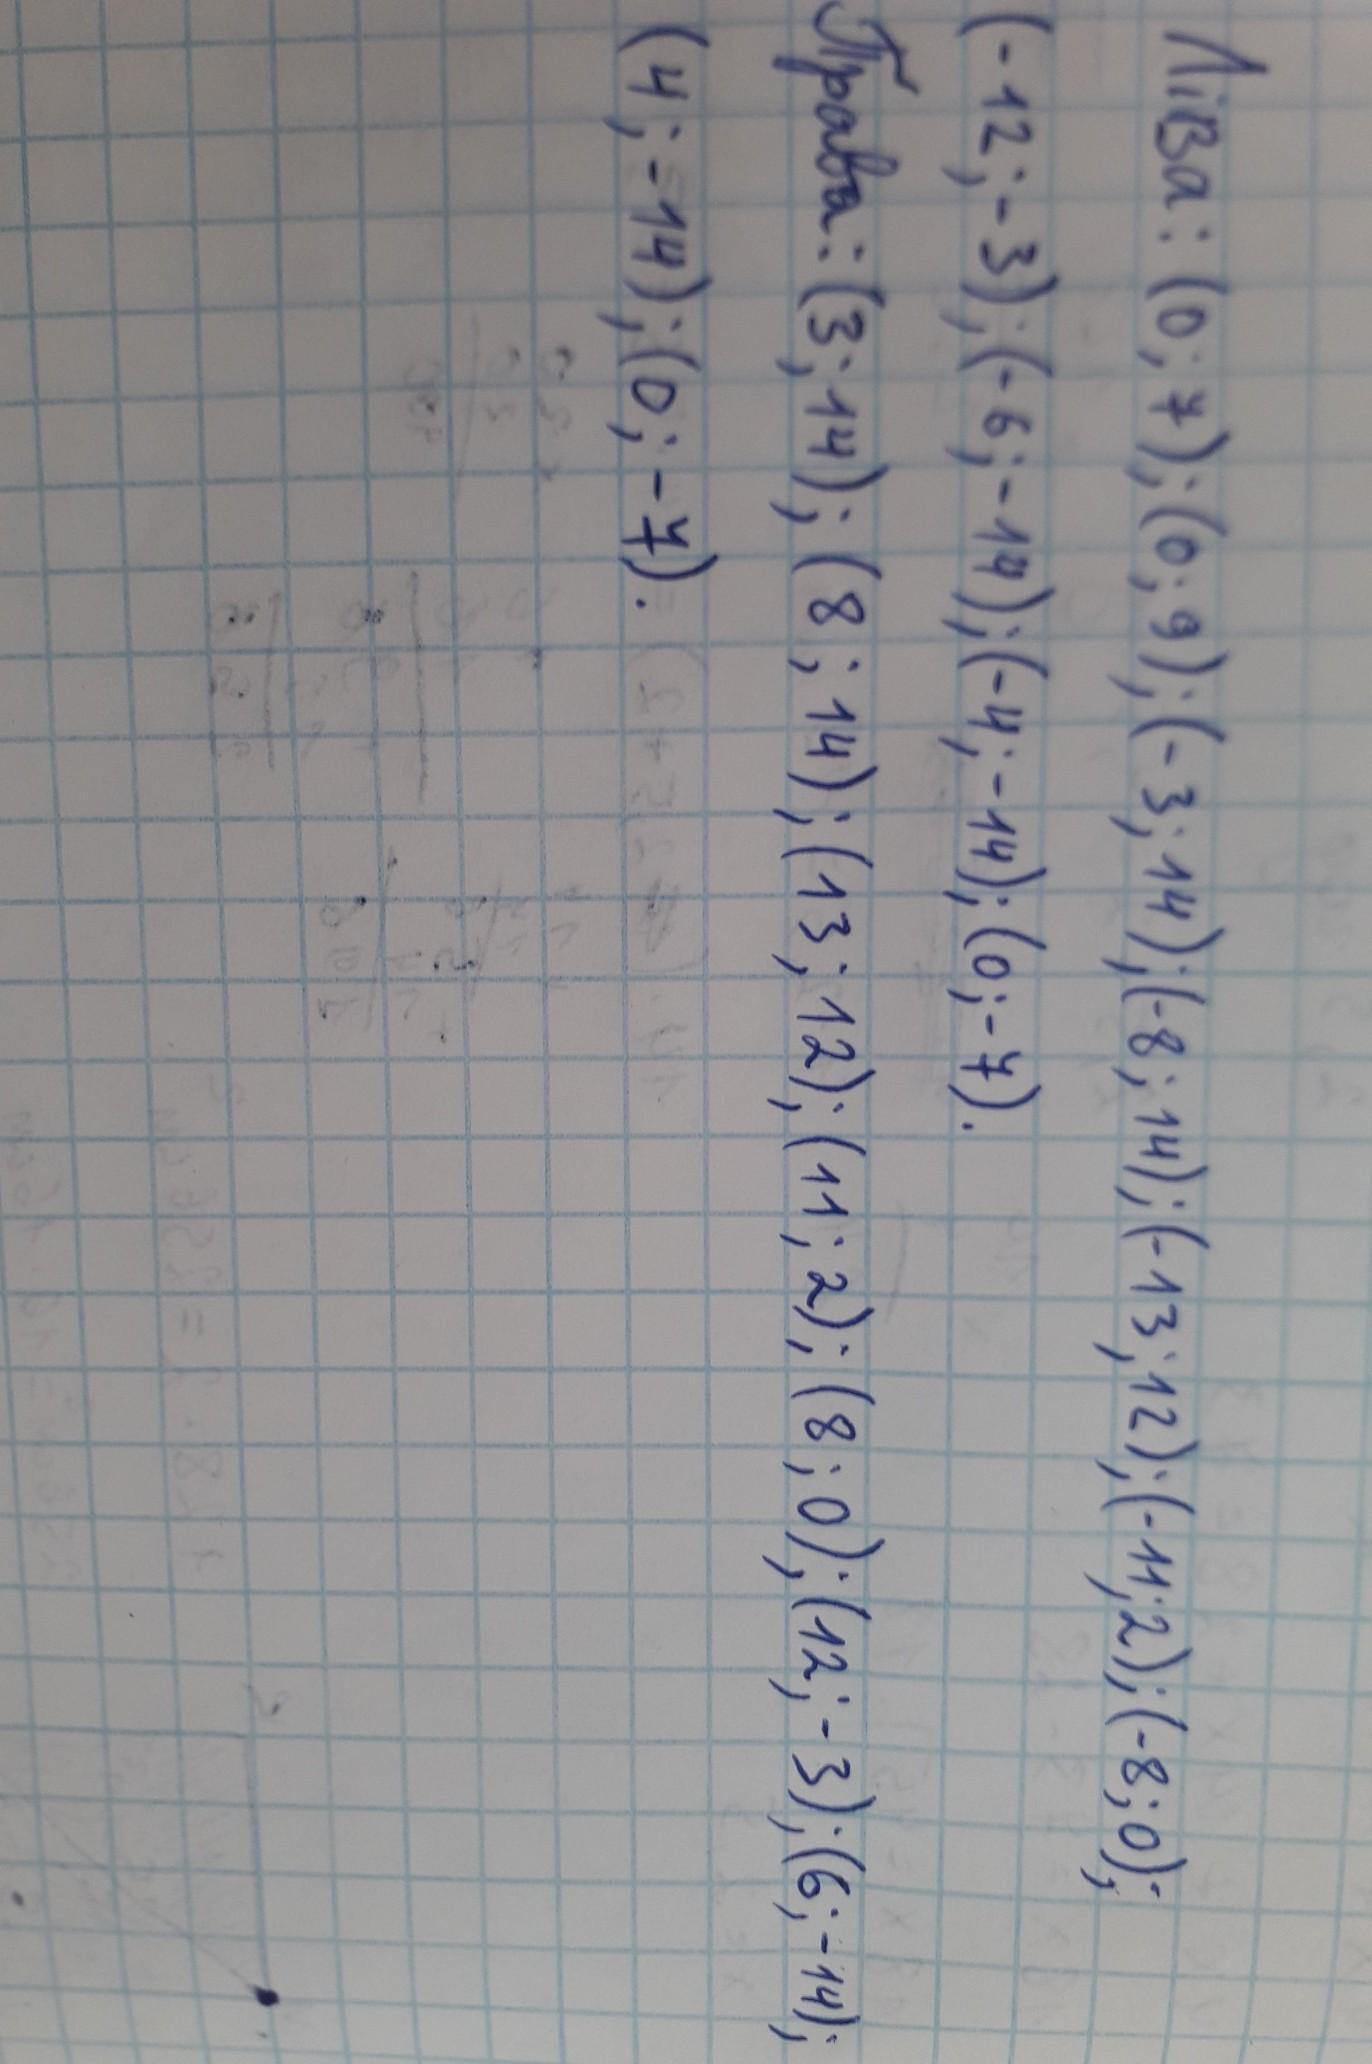 Ліва: (0; 7); (0; 9); (-3; 14); (-8; 14); (-13; 12); (-11; 2); (-8; 0);
(-12; -3); (-6; -14); (-4; -14); (0; -7).
Права: (3; 14); (8; 14); (13; 12); (11; 2); (8; 0); (12; -3); (6; -14);
(4; -14); (0; -7).